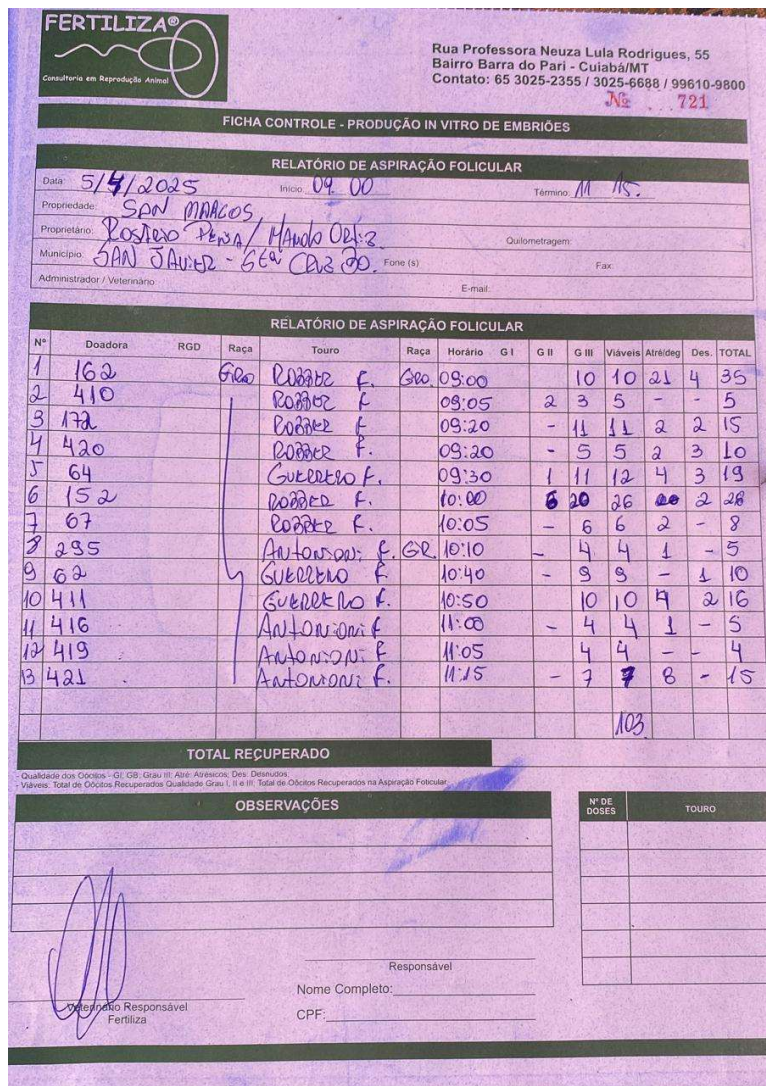 FERTILIZA®
Consultoria em Reprodução Animal
Rua Professora Neuza Lula Rodrigues, 55
Bairro Barra do Pari - Cuiabá/MT
Contato: 65 3025-2355 / 3025-6688 / 99610-9800
Nº 721
FICHA CONTROLE - PRODUÇÃO IN VITRO DE EMBRIÕES
RELATÓRIO DE ASPIRAÇÃO FOLICULAR
Data: 5/4/2025 Início: 09 00 Término: 11 15.
Propriedade: SAN MARCOS
Proprietário: / Quilometragem:
Município: SAN JAVIER - Sta CRUZ Fone (s) Fax
Administrador / Veterinário E-mail:
RELATÓRIO DE ASPIRAÇÃO FOLICULAR
Nº Doadora RGD Raça Touro Raça Horário G I G II G III Viáveis Atré/deg Des. TOTAL
1 162 GRO ROBBER F. GRO 09:00 10 10 21 4 35
2 410 ROBBER F 09:05 2 3 5 - - 5
3 172 ROBBER F 09:20 - 11 11 2 2 15
4 420 ROBBER F. 09:20 - 5 5 2 3 10
5 64 GUERRERO F. 09:30 1 11 12 4 3 19
6 152 ROBBER F. 10:00 6 20 26 2 28
7 67 ROBBER F. 10:05 - 6 6 2 - 8
8 295 ANTONIONI F. GR. 10:10 - 4 4 1 - 5
9 62 GUERRERO F 10:40 - 9 9 - 1 10
10 411 GUERRERO F. 10:50 10 10 4 2 16
11 416 ANTONIONI F 11:00 - 4 4 1 - 5
12 419 ANTONIONI F 11:05 4 4 - - 4
13 421 ANTONIONI F. 11:15 - 7 7 8 - 15
103
TOTAL RECUPERADO
- Qualidade dos Oócitos - GI; GB; Grau III; Atré: Atrésicos; Des: Desnudos;
- Viáveis: Total de Oócitos Recuperados Qualidade Grau I, II e III; Total de Oócitos Recuperados na Aspiração Folicular.
OBSERVAÇÕES
Nº DE DOSES TOURO
Responsável
Veterinário Responsável
Fertiliza
Nome Completo:
CPF: